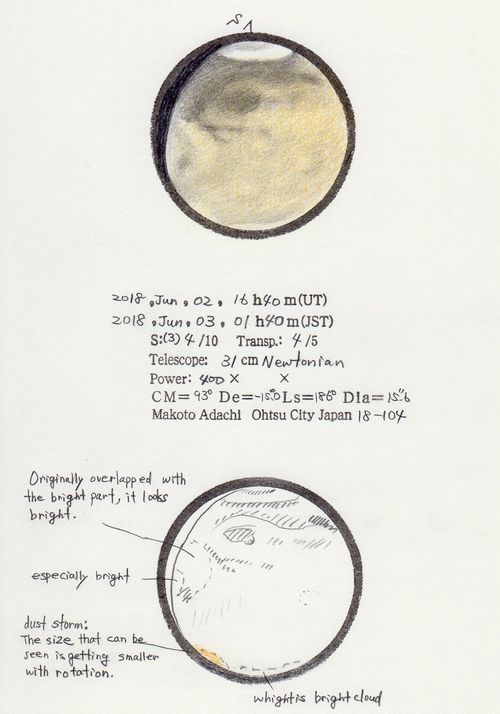 S
2018, Jun, 02, 16 h40 m(UT)
2018, Jun, 03, 01 h40 m(JST)
S:(3) 4/10 Transp.: 4/5
Telescope: 31 cm Newtonian
Power: 400 × ×
CM= 93° De= -15.°0 Ls= 186° Dia= 15."6
Makoto Adachi Ohtsu City Japan 18-104
Originally overlapped with
the bright part, it looks
bright.
especially bright
dust storm:
The size that can be
seen is getting smaller
with rotation.
whight is bright cloud